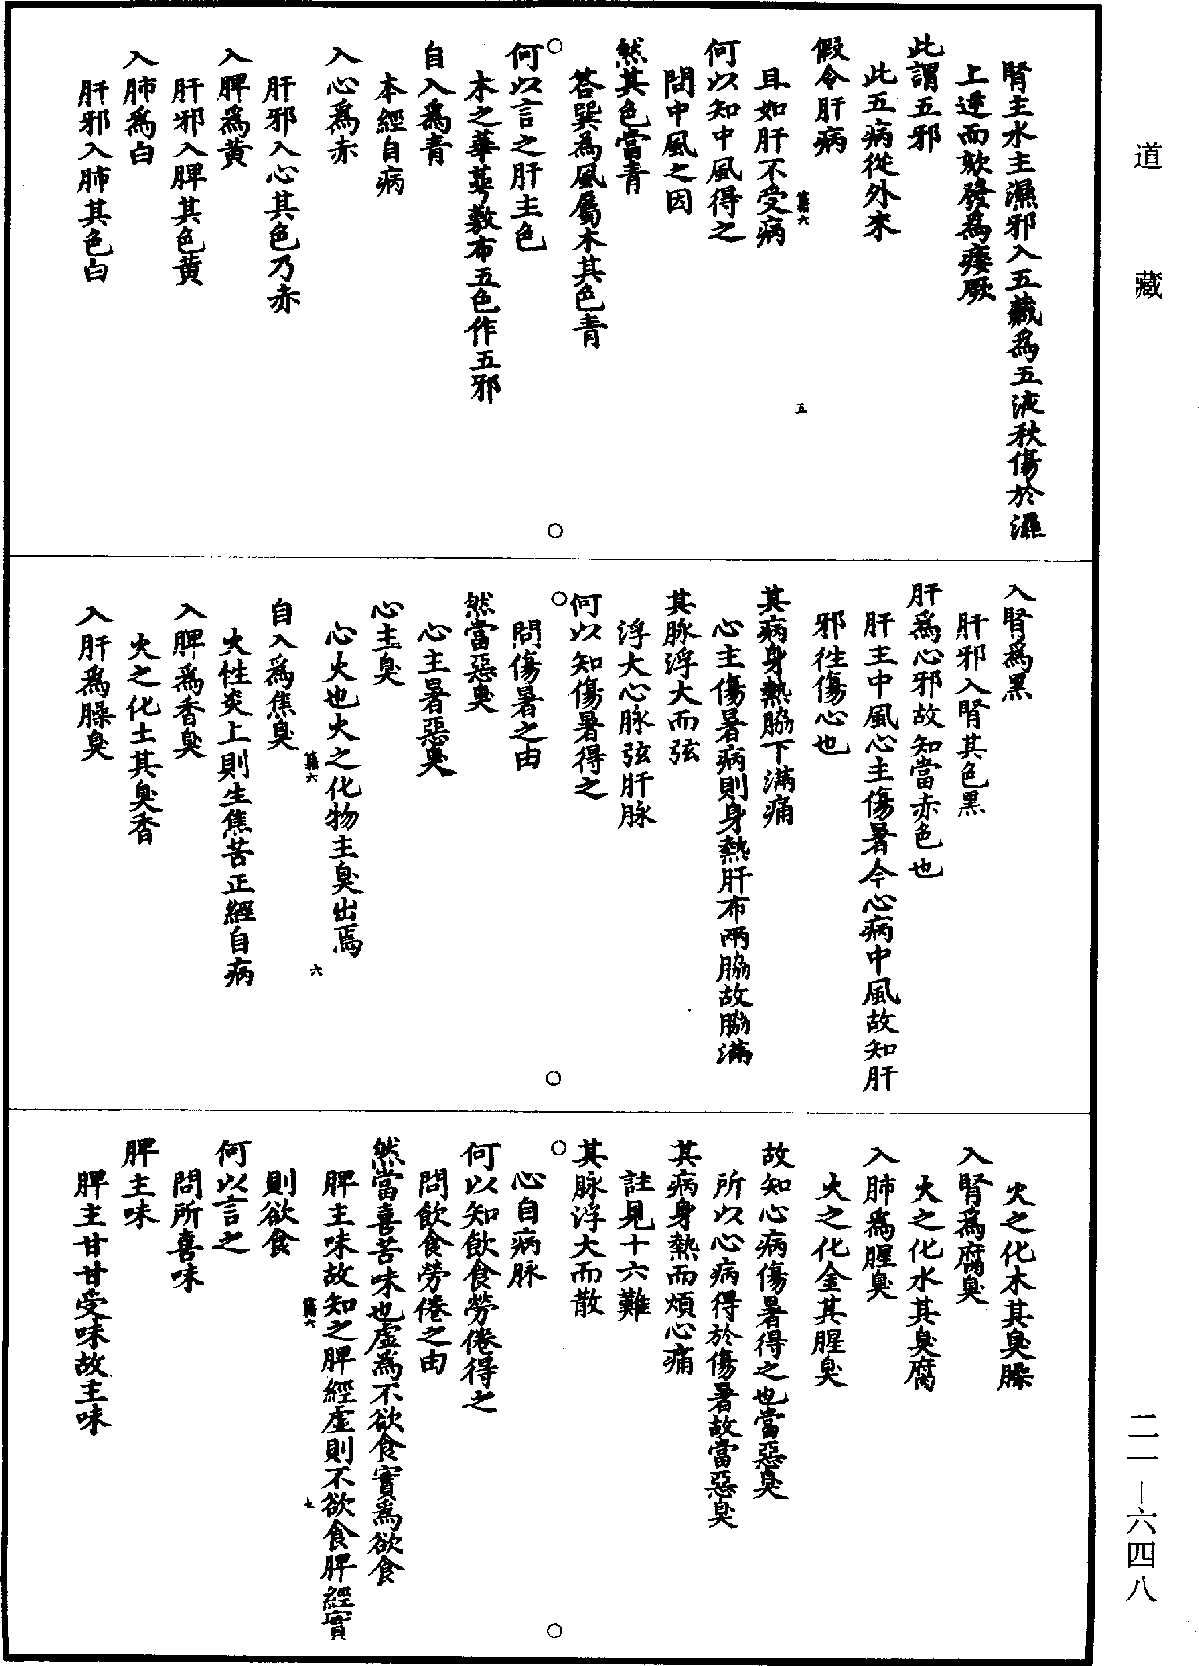 道藏
腎主水主濕邪入五藏爲五液秋傷於濕
上逆而欬發爲痿厥
此謂五邪
此五病從外來
假令肝病
且如肝不受病
何以知中風得之
問中風之因
然其色當青
答巽爲風屬木其色青
何以言之肝主色
木之華萼敷布五色作五邪
自入爲青
本經自病
入心爲赤
肝邪入心其色乃赤
入脾爲黃
肝邪入脾其色黃
入肺爲白
肝邪入肺其色白
入腎爲黑
肝邪入腎其色黑
肝爲心邪故知當赤色也
肝主中風心主傷暑今心病中風故知肝
邪徃傷心也
其病身熱脇下滿痛
心主傷暑病則身熱肝布兩脇故脇滿
其脉浮大而弦
浮大心脉弦肝脉
何以知傷暑得之
問傷暑之由
然當惡臭
心主暑惡臭
心主臭
心火也火之化物主臭出焉
自入爲焦臭
火性炎上則生焦苦正經自病
入脾爲香臭
火之化土其臭香
入肝爲臊臭
火之化木其臭臊
入腎爲腐臭
火之化水其臭腐
入肺爲腥臭
火之化金其腥臭
故知心病傷暑得之也當惡臭
所以心病得於傷暑故當惡臭
其病身熱而煩心痛
註見十六難
其脉浮大而散
心自病脉
何以知飲食勞倦得之
問飲食勞倦之由
然當喜苦味也虛爲不欲食實爲欲食
脾主味故知之脾經虛則不欲食脾經實
則欲食
何以言之
問所喜味
脾主味
脾主甘甘受味故主味
二一—六四八